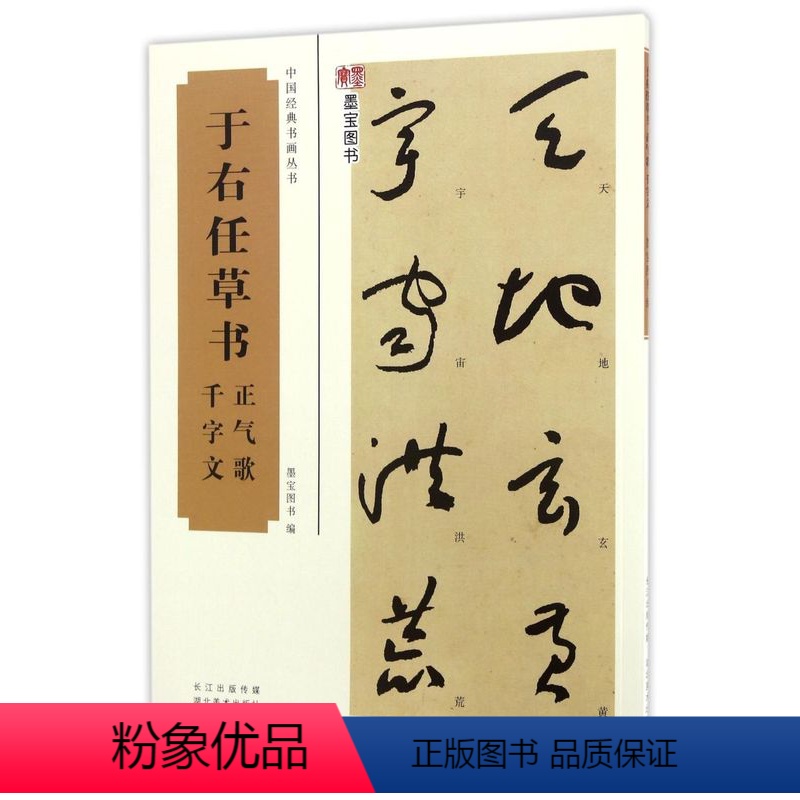 于右任草书
正气歌
千字文
中国经典书画丛书
墨宝图书 编
墨宝
墨宝图书
天地玄黄
天
地
玄
黄
宇宙洪荒
宇
宙
洪
荒
长江出版传媒
湖北美术出版社
粉象优品
正版图书 品质保证